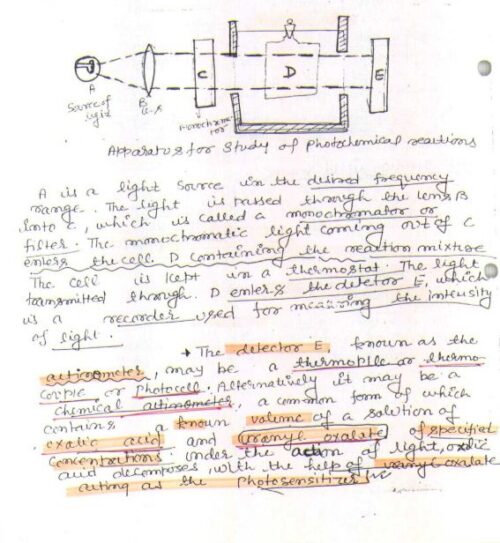 A
B
C
D
E
Source of light
Lens
Monochromator
Apparatus for Study of Photochemical reactions
A is a light Source in the desired frequency
range. The light is passed through the lens B
into C, which is called a monochromator or
filter. The monochromatic light coming out of C
enters the cell D containing the reaction mixture
The cell is kept in a thermostat. The light
transmitted through. D enters the detetor E, which
is a recorder used for measuring the intensity
of light.
→ The detector E, known as the
actinometer, may be a thermopile or thermo-
cople or Photocell. Alternatively it may be a
chemical actinometer, a common form of which
contains a known volume of a solution of
oxalic acid and uranyl oxalate of specified
concentrations. Under the action of light, oxalic
acid decomposes with the help of uranyl oxalate
acting as the Photosensitizer